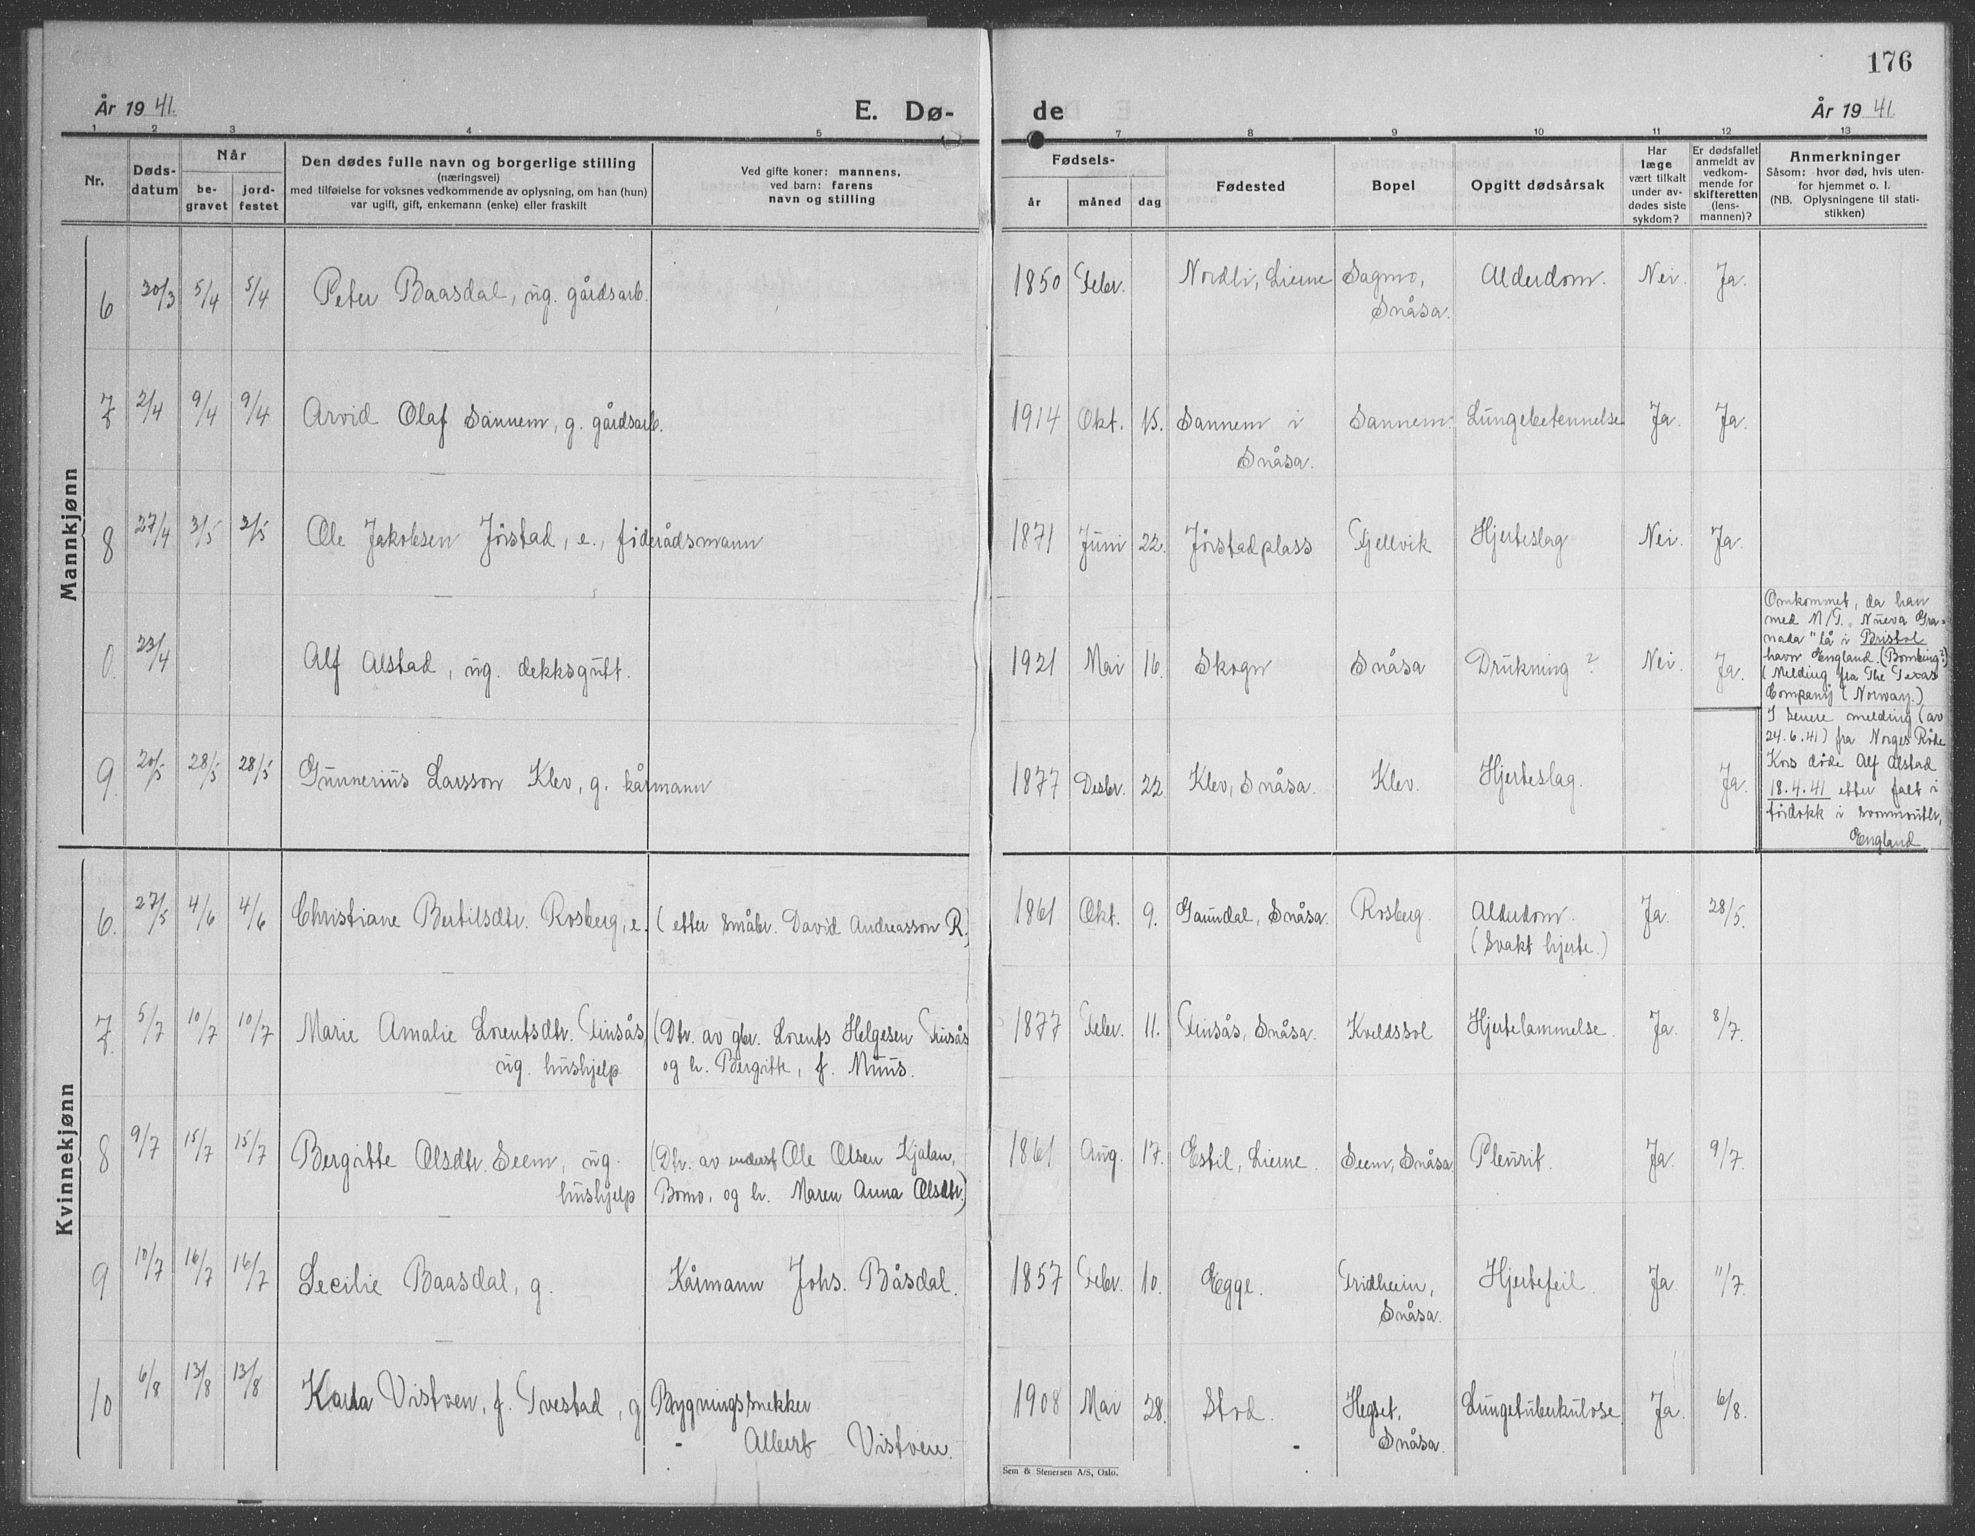 176
År 1941. E. Dø- de År 1941.
1 2 3 4 5 7 8 9 10 11 12 13
Nr. Døds-datum Når be-gravet jord-festet Den dødes fulle navn og borgerlige stilling
(næringsvei)
med tilføielse for voksnes vedkommende av oplysning, om han (hun)
var ugift, gift, enkemann (enke) eller fraskilt
Ved gifte koner: mannens,
ved barn: farens
navn og stilling
Fødsels-
år måned dag
Fødested
Bopel
Opgitt dødsårsak
Har
læge
vært tilkalt
under av-
dødes siste
sykdom?
Er dødsfallet
anmeldt av
vedkom-
mende for
skifteretten
(lens-
mannen)?
Anmerkninger
Såsom: hvor død, hvis uten-
for hjemmet o. l.
(NB. Oplysningene til stati-
stikken)
Mannkjønn
6 30/3 5/4 5/4 Peter Baasdal, ug. gårdsarb. 1850 Febr. Nordli, Lierne Sagmo, Alderdom. Nei. Ja.
Snåsa.
7. 2/4 9/4 9/4 Arvid Olaf Sannem, g. gårdsarb. 1914 Okt. 15. Sannem i Sannem. Lungebetennelse Ja. Ja.
Snåsa.
8 27/4 3/5 3/5 Ole Jakobsen Jørstad, e., føderådsmann 1871 Juni 22. Jørstadplass Gjellvik Hjerteslag Nei. Ja.
0. 23/4 Alf Alstad, ug. dekksgutt. 1921 Mai 16. Skogn Snåsa Drukning? Nei. Ja.
Omkommet, da han
med M/T. "Nueva Gra-
nada" lå i Bristol
havn England. (Bombing?)
(Melding fra The Texas
Company (Norway.)
I senere melding (av
24.6.41) fra Norges Røde
Kors døde Alf Alstad
18.4.41 etter fall i
tørdokk i
England
9. 20/5 28/5 28/5 Gunnerius Larsson Klev, g. kårmann 1877 Desbr. 22 Klev, Snåsa. Klev. Hjerteslag. Ja.
Kvinnekjønn
6. 27/5 4/6 4/6 Christiane Bertilsdtr. Rosberg, e. (etter småbr. David Andreasson R.) 1861 Okt. 9. Gaundal, Snåsa. Rosberg. Alderdom. Ja. 28/5.
(Svakt hjerte.)
7. 5/7 10/7 10/7 Marie Amalie Lorentsdtr. Finsås, (Dtr. av gbr. Lorents Helgesen Finsås 1877 Febr. 11. Finsås, Snåsa. Kveldssol Hjertelammelse. Ja. 8/7.
ug. hushjelp og h. Bergitte, f. Muus.
8 9/7 15/7 15/7 Bergitte Olsdtr. Seem, ug. (Dtr. av enderst Ole Olsen Kjølan, 1861 Aug. 17. Estil, Lierne. Seem, Snåsa Pleurit. Ja. 9/7.
hushjelp Bomo, og h. Maren Anna Olsdtr.)
9 10/7 16/7 16/7 Cecilie Baasdal, g. Kårmann Johs. Båsdal. 1857 Febr. 10. Egge. Fridheim, Hjertefeil. Ja. 11/7.
Snåsa.
10 6/8 13/8 13/8 Karla Vistven, f. Tvestad, g Bygningssnekker 1908 Mai 28. Stod. Hegset, Lungetuberkulose. Ja. 6/8.
Albert Vistven. Snåsa.
Sem & Stenersen A/S, Oslo.